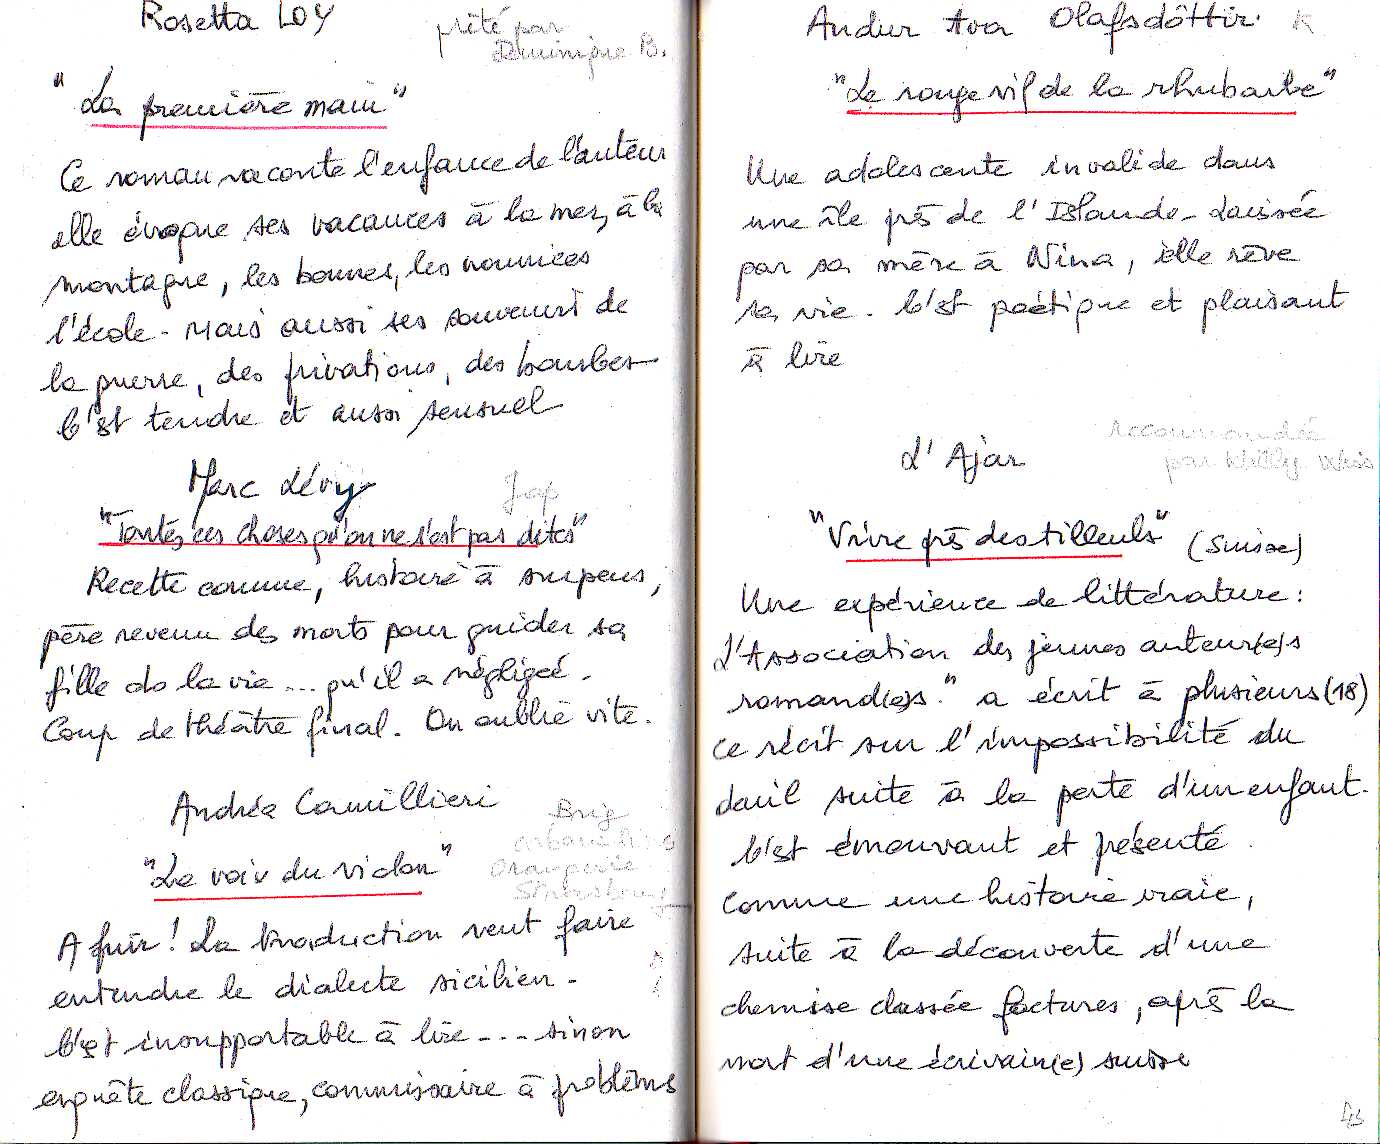 Rosetta Loy
prêté par
Dominique B.
"La première main"
Ce roman raconte l'enfance de l'auteur
elle évoque ses vacances à la mer, à la
montagne, les bonnes, les nourrices
l'école - Mais aussi ses souvenirs de
la guerre, des privations, des bombes
C'est tendre et aussi sensuel
Marc Lévy
"Toutes ces choses qu'on ne s'est pas dites"
Recette connue, histoire à suspens,
père revenu des morts pour guider sa
fille ds la vie... qu'il a négligée.
Coup de théâtre final. On oublie vite.
Andréa Camillieri
Brig
Orangerie
Strasbourg
"La voix du violon"
A fuir! La traduction veut faire
entendre le dialecte sicilien -
C'est insupportable à lire --- sinon
enquête classique, commissaire à problèmes
Audur Ava Olafsdôttir K
"Le rouge vif de la rhubarbe"
Une adolescente invalide dans
une île près de l'Islande - Laissée
par sa mère à Nina, elle rêve
sa vie. C'est poétique et plaisant
à lire
recommandée
par Willy
L'Ajar
"Vivre près des tilleuls" (Suisse)
Une expérience de littérature:
L'Association des jeunes auteur(e)s
romand(e)s." a écrit à plusieurs (18)
ce récit sur l'impossibilité du
deuil suite à la perte d'un enfant.
C'est émouvant et présenté
comme une histoire vraie,
suite à la découverte d'une
chemise classée factures, après la
mort d'une écrivain(e) suisse